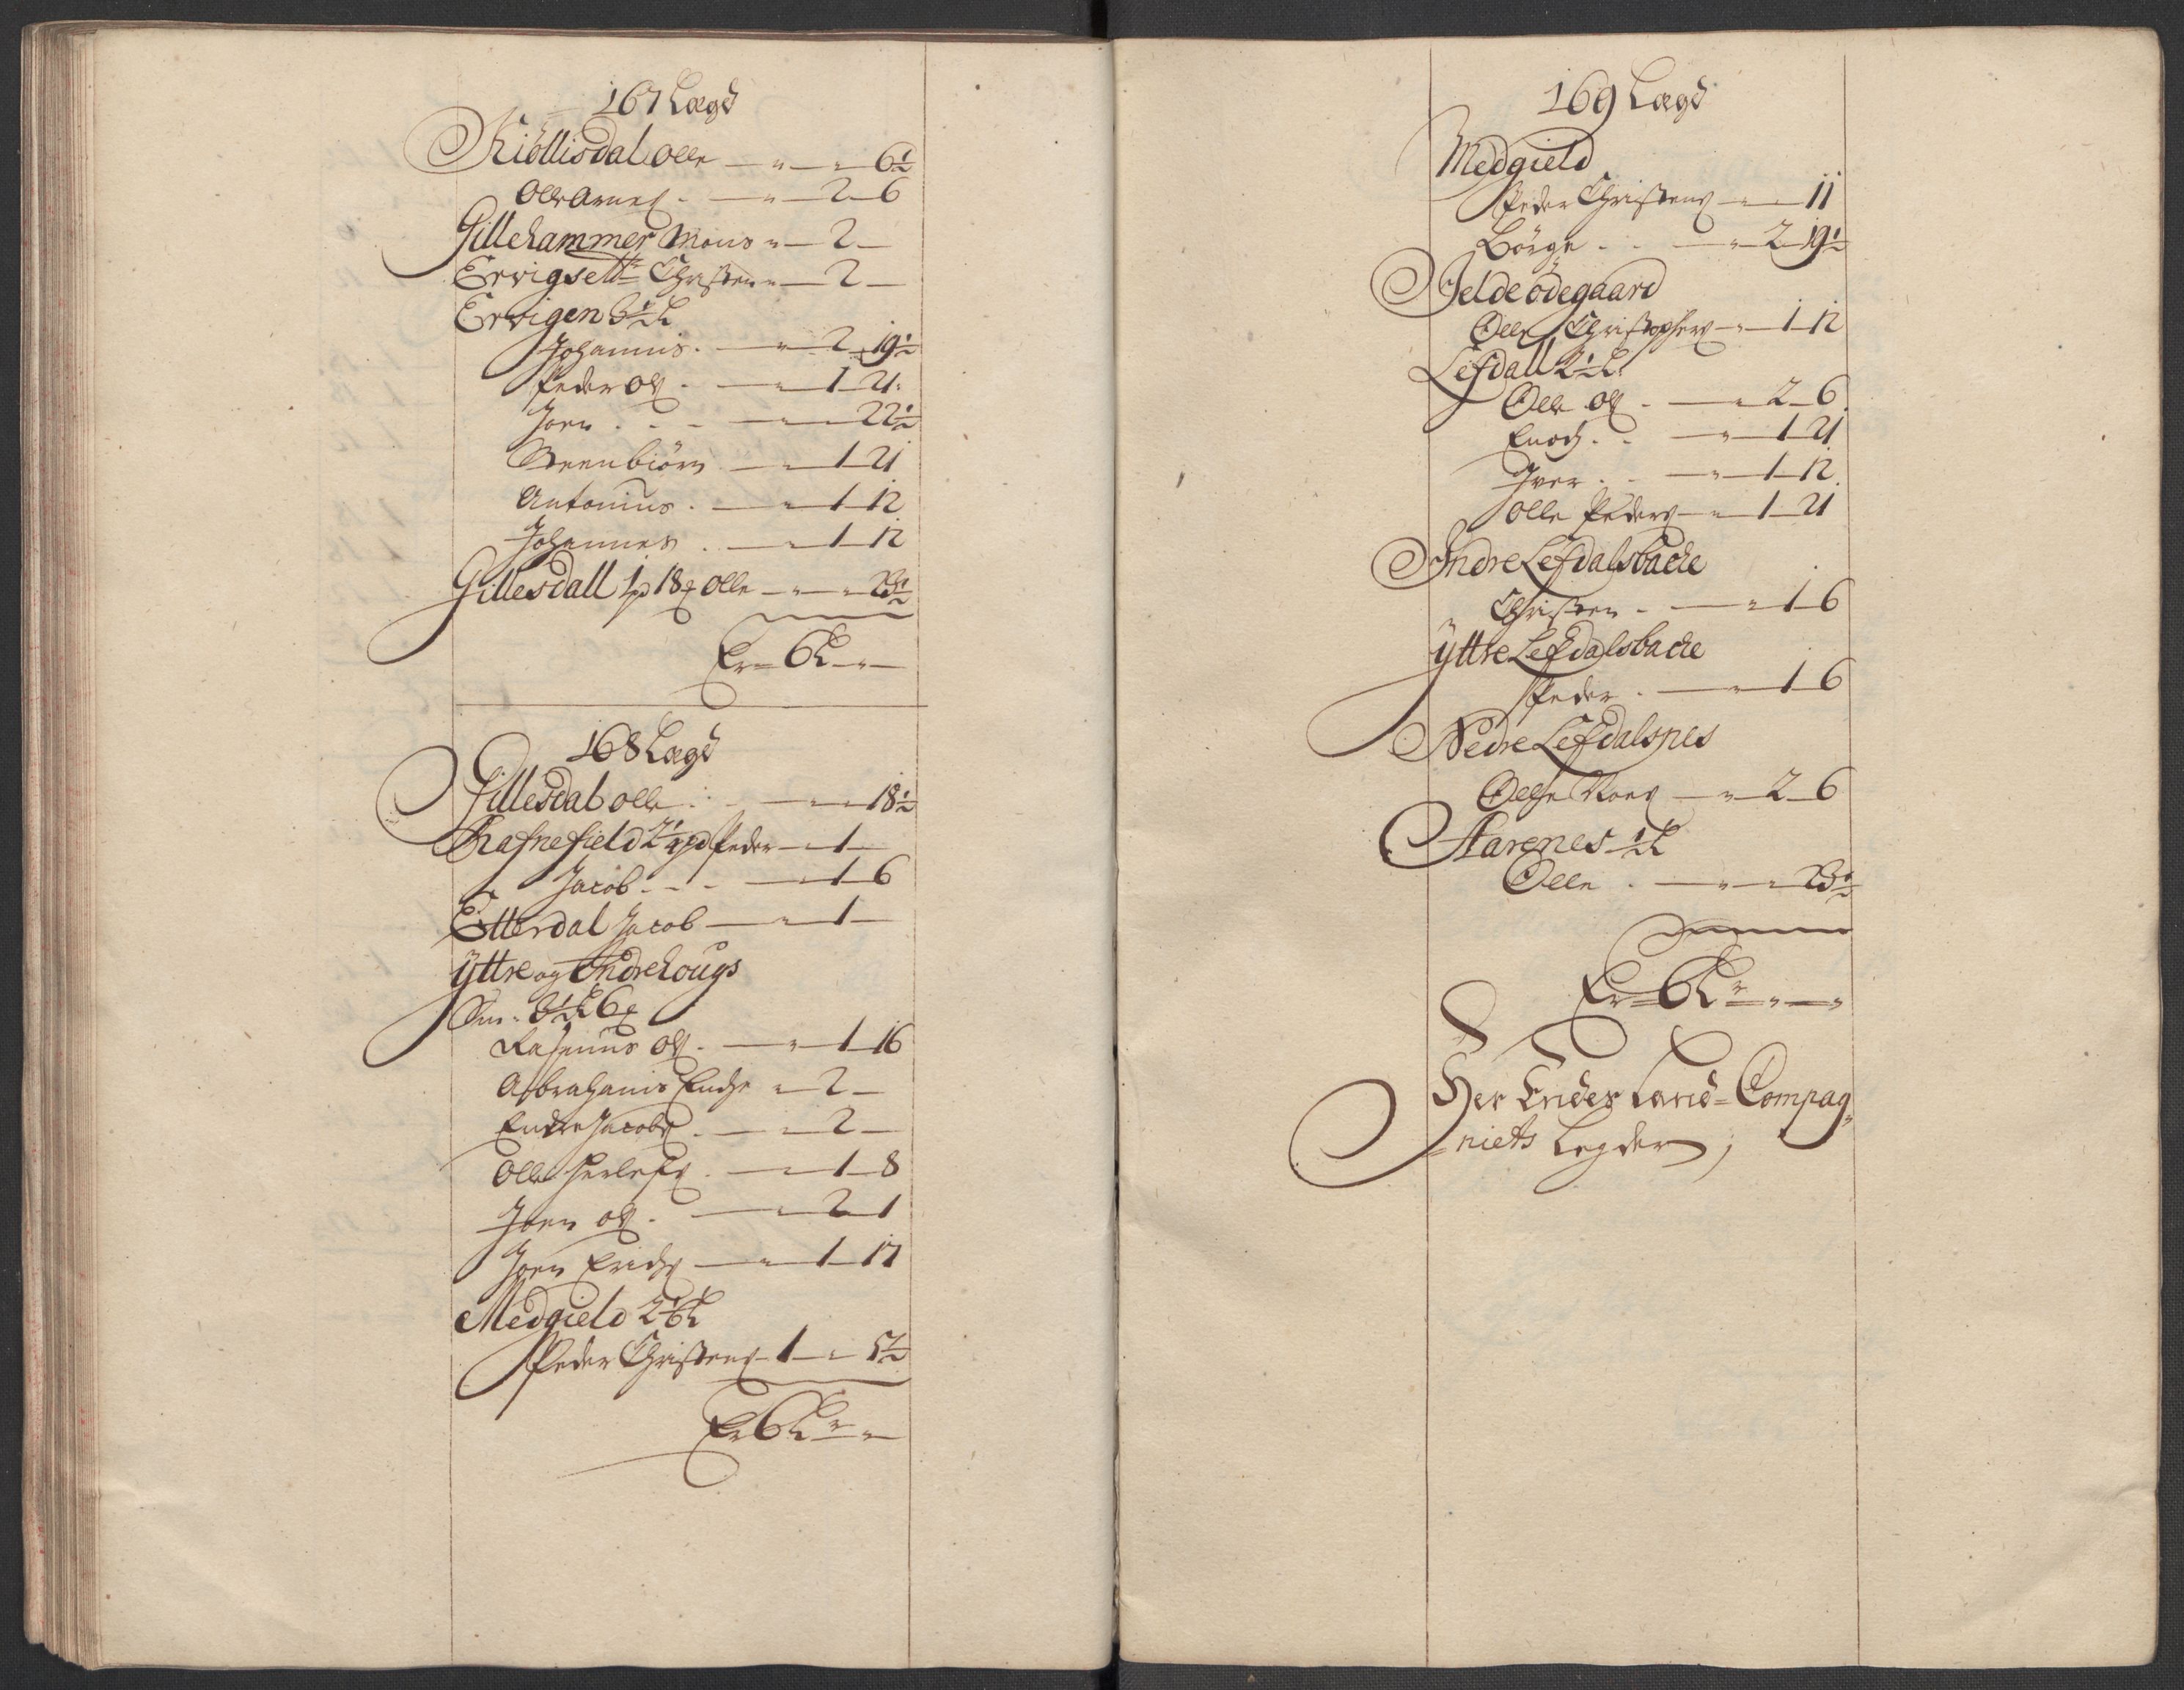 167 Lægd
Kiöllisdal Olle — " — " 6½
Olle Arnes. — " — 2 - 6
Gillehammer Mons " — 2 —
Ervigsett Christen " — 2 —
Ervigen 3½ L
Johannis. — " — 2 - 19½
Peder Ols. — " — 1 - 21
Joen . . - — " — 22½
Steenbiörn — " — 1 - 21
Antonius. — " — 1 - 12
Johannes . — " — 1 - 12
Gillesdall 1 p 18 Olle — " — " 23½
Er = 6 L — " —
168 Lægd
Gillesdal Olle . . — " — " 18½
Rafnefield 2½ p Peder — " 1 —
Jacob - - - — " — 1 - 6
Etterdal Jacob — " — 1 —
Yttre og Indre Hougs
3½ L 6
Rasmus Ols. — " — 1 - 16
Abrahams " — 2 —
Endre Jacobs. — " — 2 —
Olle — " — 1 - 8
Joen Ols. — " — 2 - 1
Joen Erichs — " — 1 - 17
Medgield 2 L
Peder Christens — 1 — " 5½
Er 6 L " — "
169 Lægd
Medgield
Peder Christens — " — " 11
Börge . . — " — 2 - 19½
Jeldeödegaard
Olle Christophers — " — 1 - 12
Lefdall L
Olle Ols — " 2 - 6
Enoch . . — " — 1 - 21
Iver . . — " — 1 - 12
Olle Peders — " — 1 - 21
Indre Lefdalsbache
Christen - — " 1 - 6
Yttre Lefdalsbache
Peder . — " — 1 - 6
Nedre Lefdalsnes
— " — 2 - 6
Aarenes ½ L
Olle . — " — " 23½
Er = 6 L " — "
Her Endes Land-Compag-
niets Legder ;